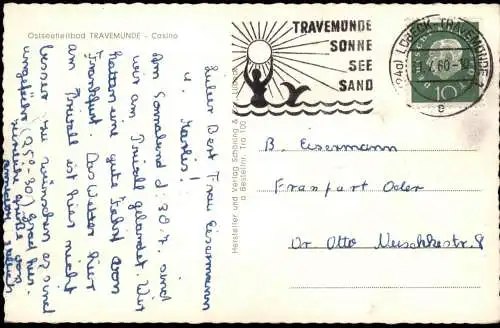 Ostseeheilbad TRAVEMÜNDE - Casino
TRAVEMÜNDE
SONNE
SEE
SAND
(24a) LÜBECK-TRAVEMÜNDE 1
60
e
10
Hersteller und Verlag Schöning &
Bestellnr. Tra 100
B. Eisermann
Frankfurt Oder
Dr Otto Nuschkestr. 8
Lieber Bert Frau Eisermann
u.
Am Sonnabend d. 30. 7. sind
wir am Priwall gelandet. Wir
hatten eine gute Fahrt von
Frankfurt. Das Wetter hier
am Priwall ist hier nicht
besser zu wünschen es sind
ungefähr (250-30) Grad hier.
herzliche Grüße von